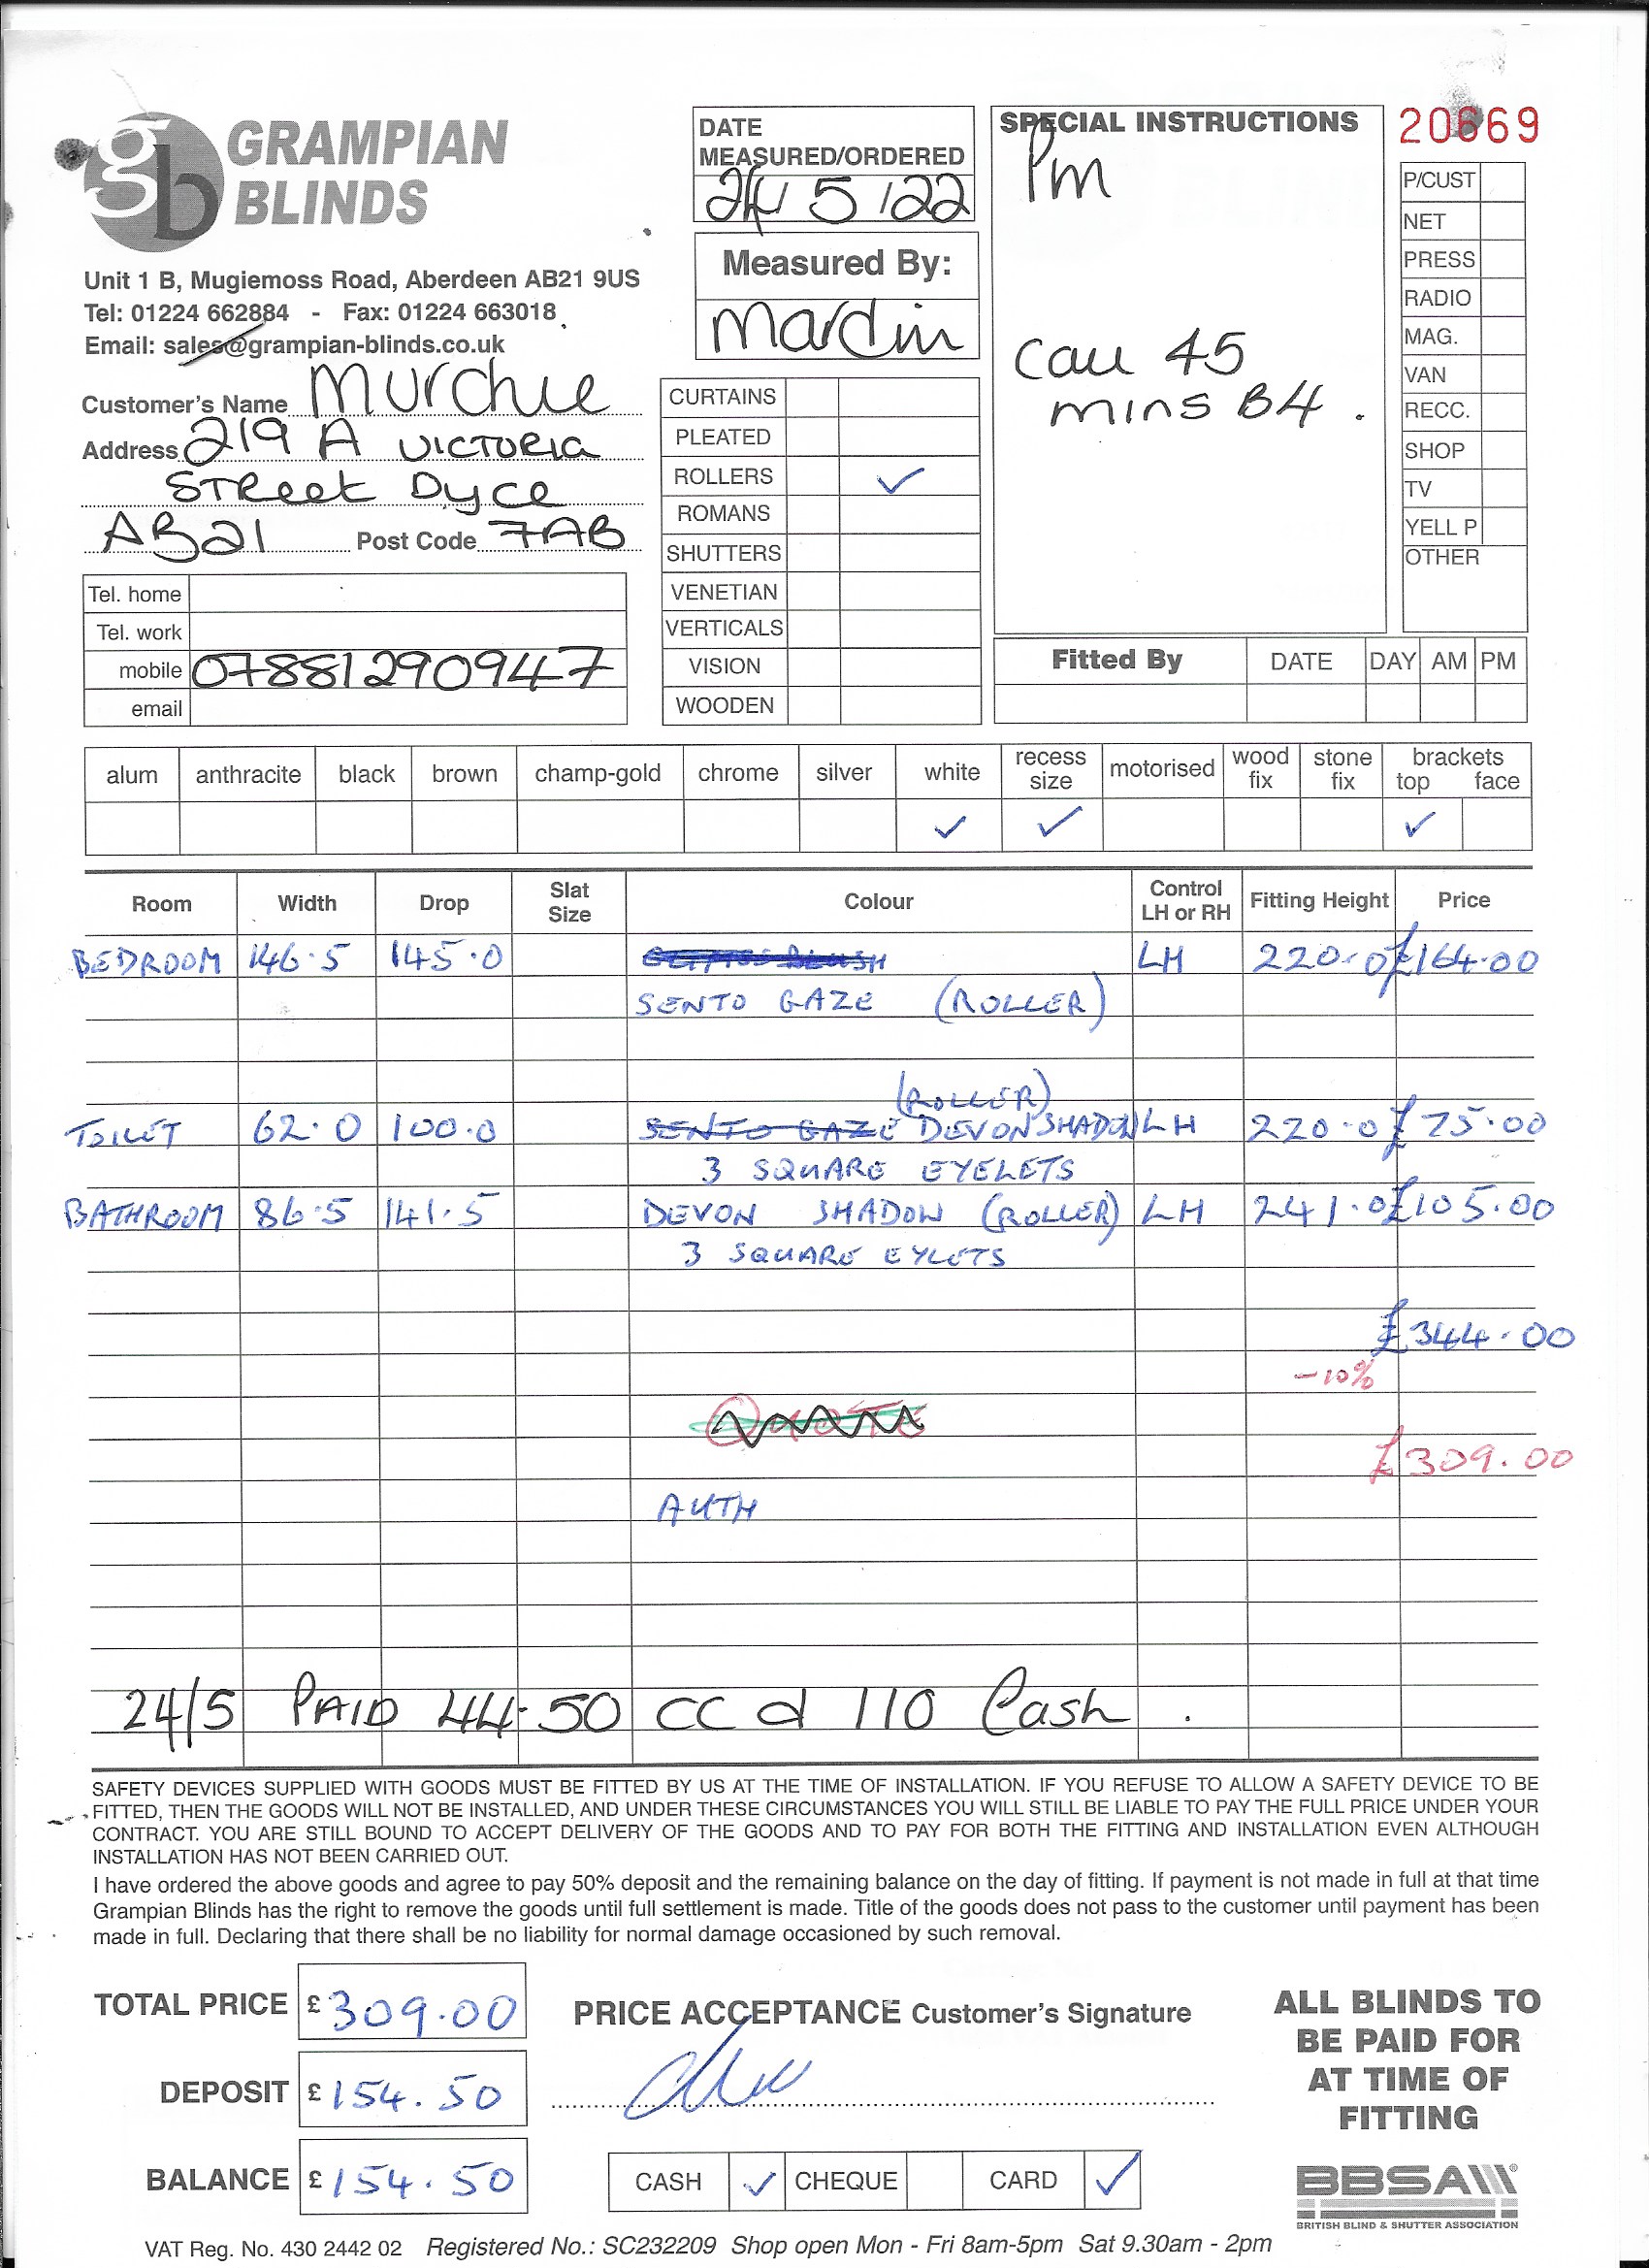 GRAMPIAN
BLINDS
Unit 1 B, Mugiemoss Road, Aberdeen AB21 9US
Tel: 01224 662884 - Fax: 01224 663018
Email: sales@grampian-blinds.co.uk
Customer's Name Murchie
Address 219 A VICTORIA
STREET Dyce
AB21 Post Code 7AB
Tel. home
Tel. work
mobile 07881290947
email
DATE
MEASURED/ORDERED
24/5/22
Measured By:
Martin
CURTAINS
PLEATED
ROLLERS ✓
ROMANS
SHUTTERS
VENETIAN
VERTICALS
VISION
WOODEN
SPECIAL INSTRUCTIONS
Pm
Call 45
mins B4.
20669
P/CUST
NET
PRESS
RADIO
MAG.
VAN
RECC.
SHOP
TV
YELL P
OTHER
Fitted By DATE DAY AM PM
alum anthracite black brown champ-gold chrome silver white recess size motorised wood fix stone fix brackets top face
✓ ✓ ✓
Room Width Drop Slat Size Colour Control LH or RH Fitting Height Price
BEDROOM 146.5 145.0 LH 220.0 £164.00
SENTO GAZE (ROLLER)
(ROLLER)
TOILET 62.0 100.0 SENTO GAZE DEVON SHADOW LH 220.0 £75.00
3 SQUARE EYELETS
BATHROOM 86.5 141.5 DEVON SHADOW (ROLLER) LH 241.0 £105.00
3 SQUARE EYLETS
£344.00
-10%
QUOTE
£309.00
AUTH
24/5 PAID 44.50 CC d 110 Cash.
SAFETY DEVICES SUPPLIED WITH GOODS MUST BE FITTED BY US AT THE TIME OF INSTALLATION. IF YOU REFUSE TO ALLOW A SAFETY DEVICE TO BE
FITTED, THEN THE GOODS WILL NOT BE INSTALLED, AND UNDER THESE CIRCUMSTANCES YOU WILL STILL BE LIABLE TO PAY THE FULL PRICE UNDER YOUR
CONTRACT. YOU ARE STILL BOUND TO ACCEPT DELIVERY OF THE GOODS AND TO PAY FOR BOTH THE FITTING AND INSTALLATION EVEN ALTHOUGH
INSTALLATION HAS NOT BEEN CARRIED OUT.
I have ordered the above goods and agree to pay 50% deposit and the remaining balance on the day of fitting. If payment is not made in full at that time
Grampian Blinds has the right to remove the goods until full settlement is made. Title of the goods does not pass to the customer until payment has been
made in full. Declaring that there shall be no liability for normal damage occasioned by such removal.
TOTAL PRICE £309.00
DEPOSIT £154.50
BALANCE £154.50
PRICE ACCEPTANCE Customer's Signature
CASH ✓ CHEQUE CARD ✓
ALL BLINDS TO
BE PAID FOR
AT TIME OF
FITTING
BBSA
BRITISH BLIND & SHUTTER ASSOCIATION
VAT Reg. No. 430 2442 02 Registered No.: SC232209 Shop open Mon - Fri 8am-5pm Sat 9.30am - 2pm